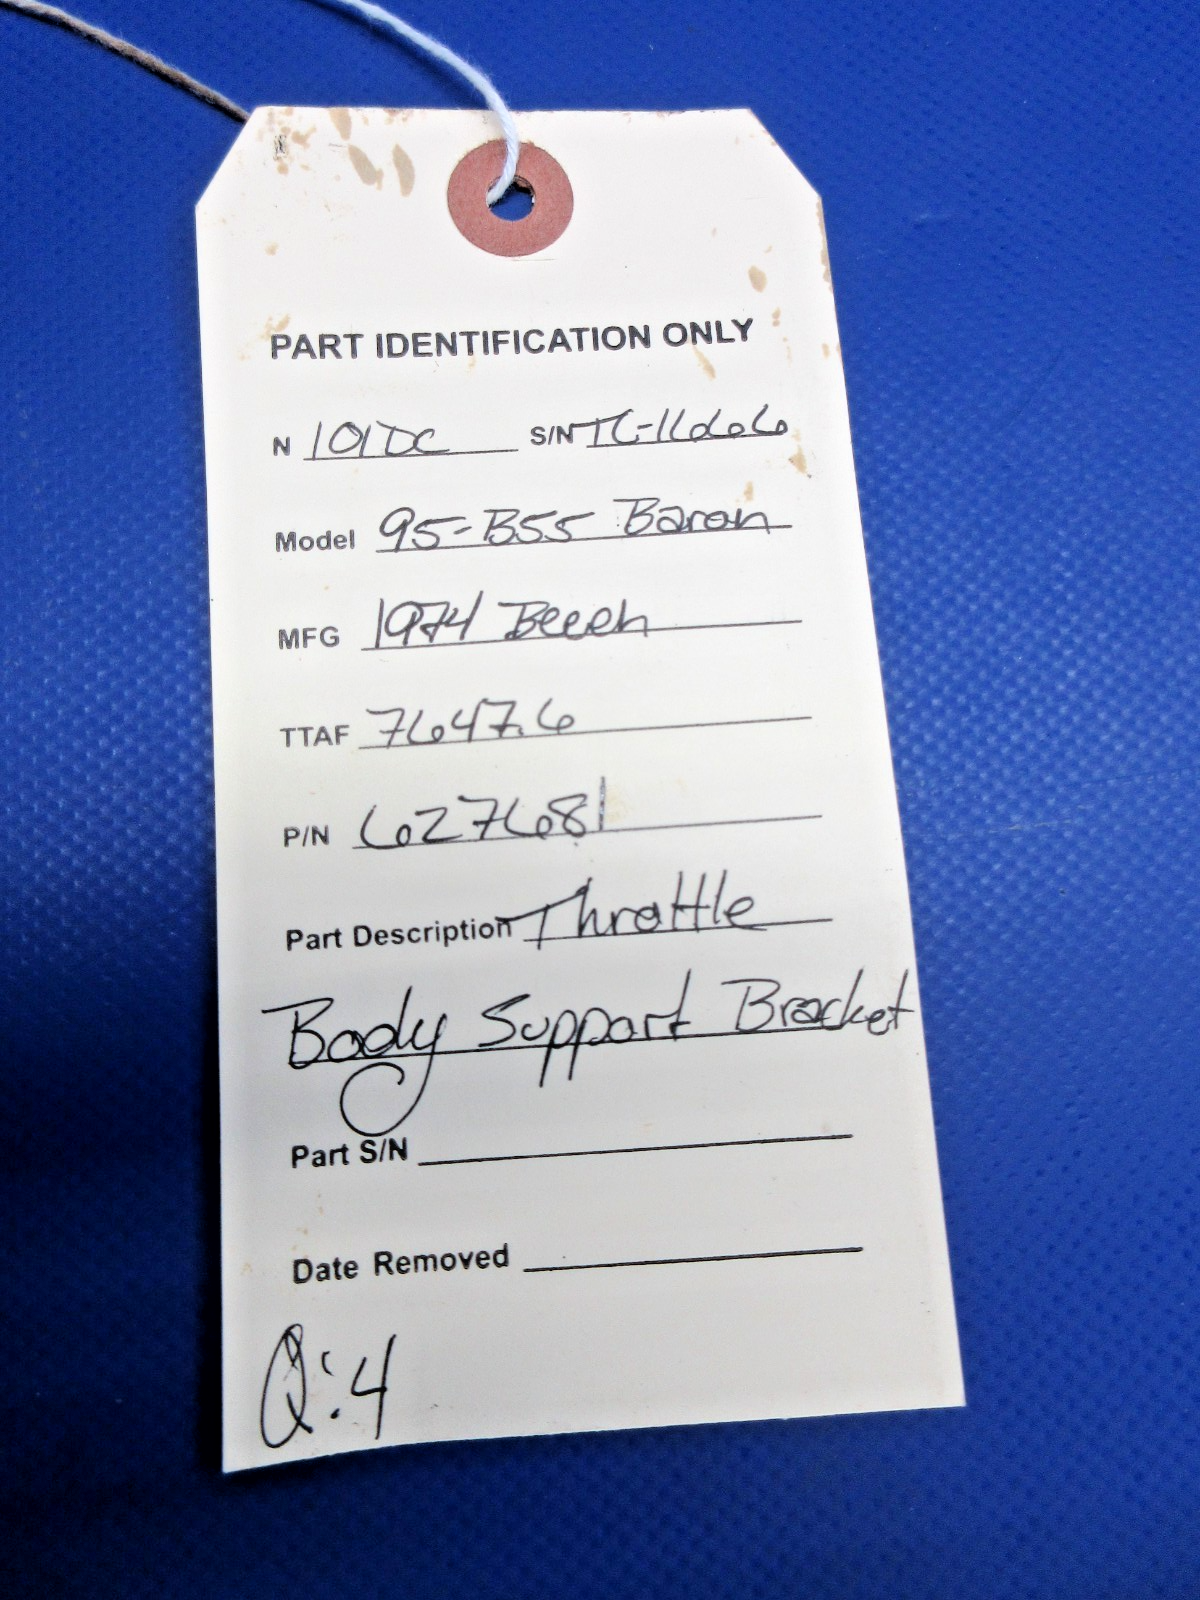 PART IDENTIFICATION ONLY
N 101DC S/N TC-1666
Model 95-B55 Baron
MFG 1974 Beech
TTAF 7647.6
P/N 627681
Part Description Throttle
Body Support Bracket
Part S/N
Date Removed
Q:4